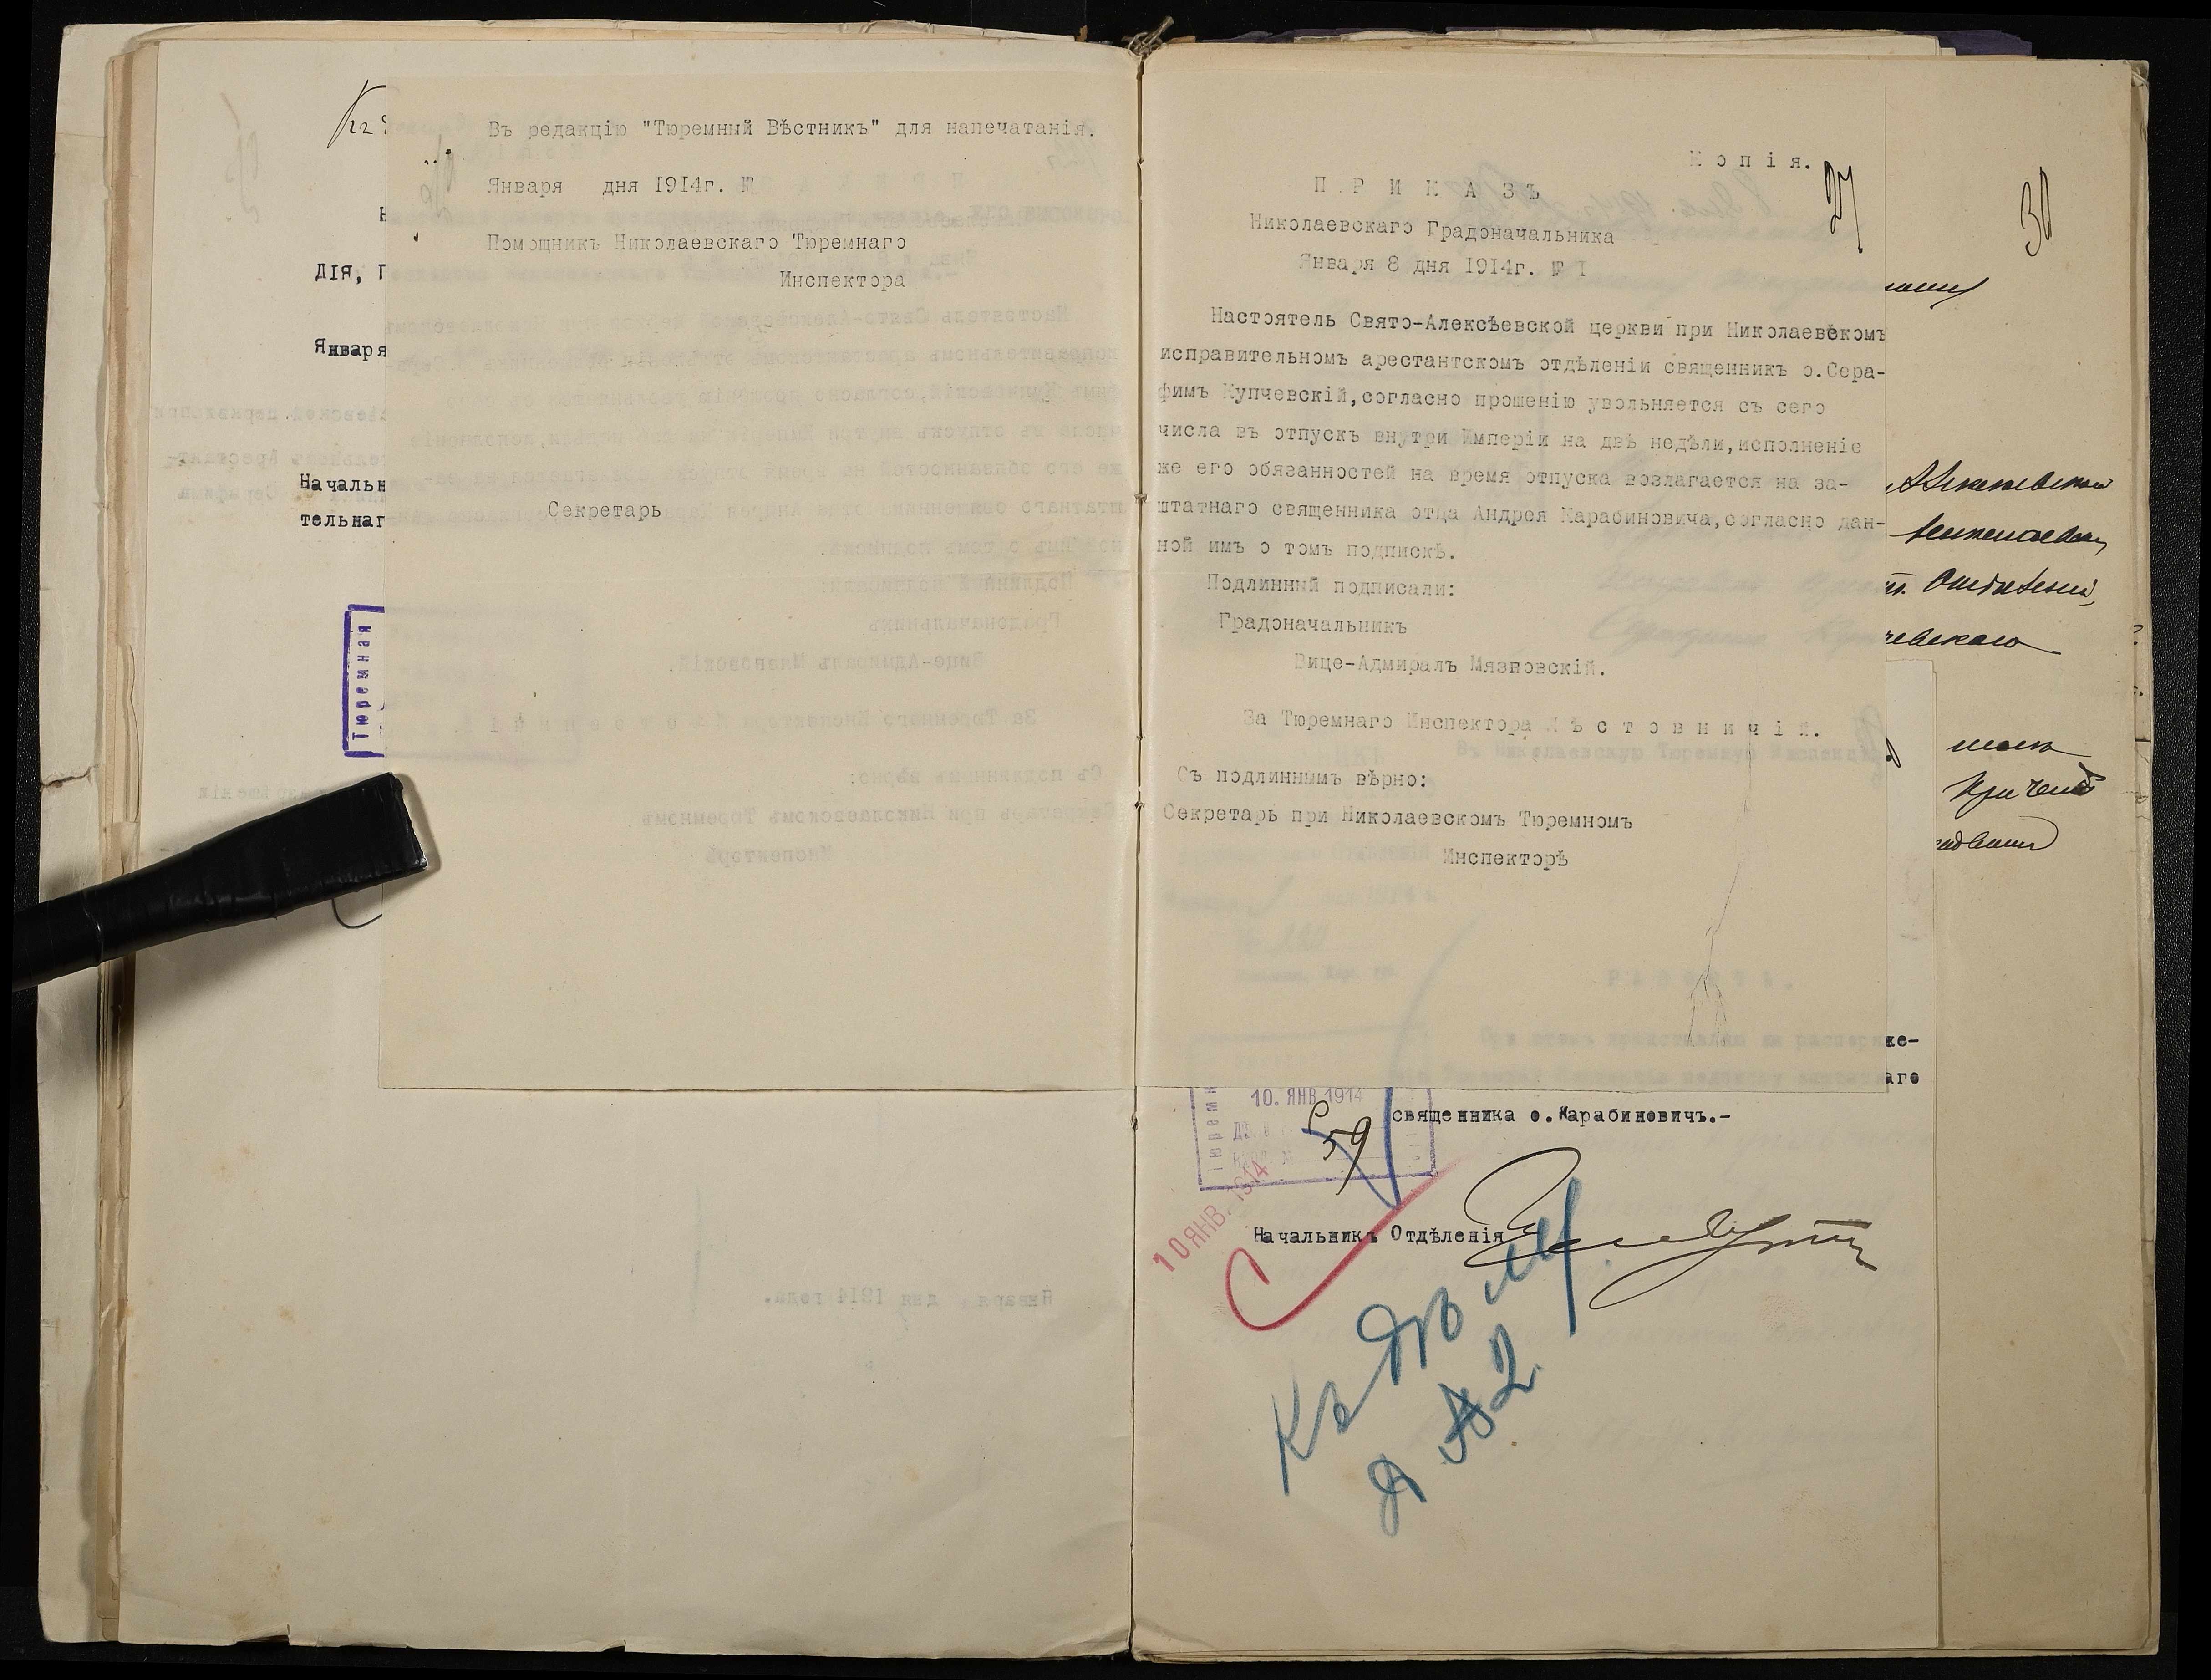 Въ редакцію "Тюремный Вѣстникъ" для напечатанія.
Января дня 1914г. №
Помощникъ Николаевскаго Тюремнаго
Инспектора
ДІЯ,
Января
Начальн
тельнаг
Секретарь
Тюремная
Копія.
27
30
П Р И К А З Ъ
Николаевскаго Градоначальника
Января 8 дня 1914г. № I
Настоятель Свято-Алексѣевской церкви при Николаевскомъ
исправительномъ арестантскомъ отдѣленіи священникъ о.Сера-
фимъ Купчевскій,согласно прошенію увольняется съ сего
числа въ отпускъ внутри Имперіи на двѣ недѣли,исполненіе
же его обязанностей на время отпуска возлагается на за-
штатнаго священника отца Андрея Карабиновича,согласно дан-
ной имъ о томъ подпискѣ.
Подлинный подписали:
Градоначальникъ
Вице-Адмиралъ Мязговскій.
За Тюремнаго Инспектора М ѣ с т о в н и ч і й.
Съ подлиннымъ вѣрно:
Секретарь при Николаевскомъ Тюремномъ
Инспекторѣ
же-
аго
10. ЯНВ 1914
59
священника о.Карабиновичъ.-
10 ЯНВ. 1914
Начальникъ Отдѣленія
Къ дѣлу